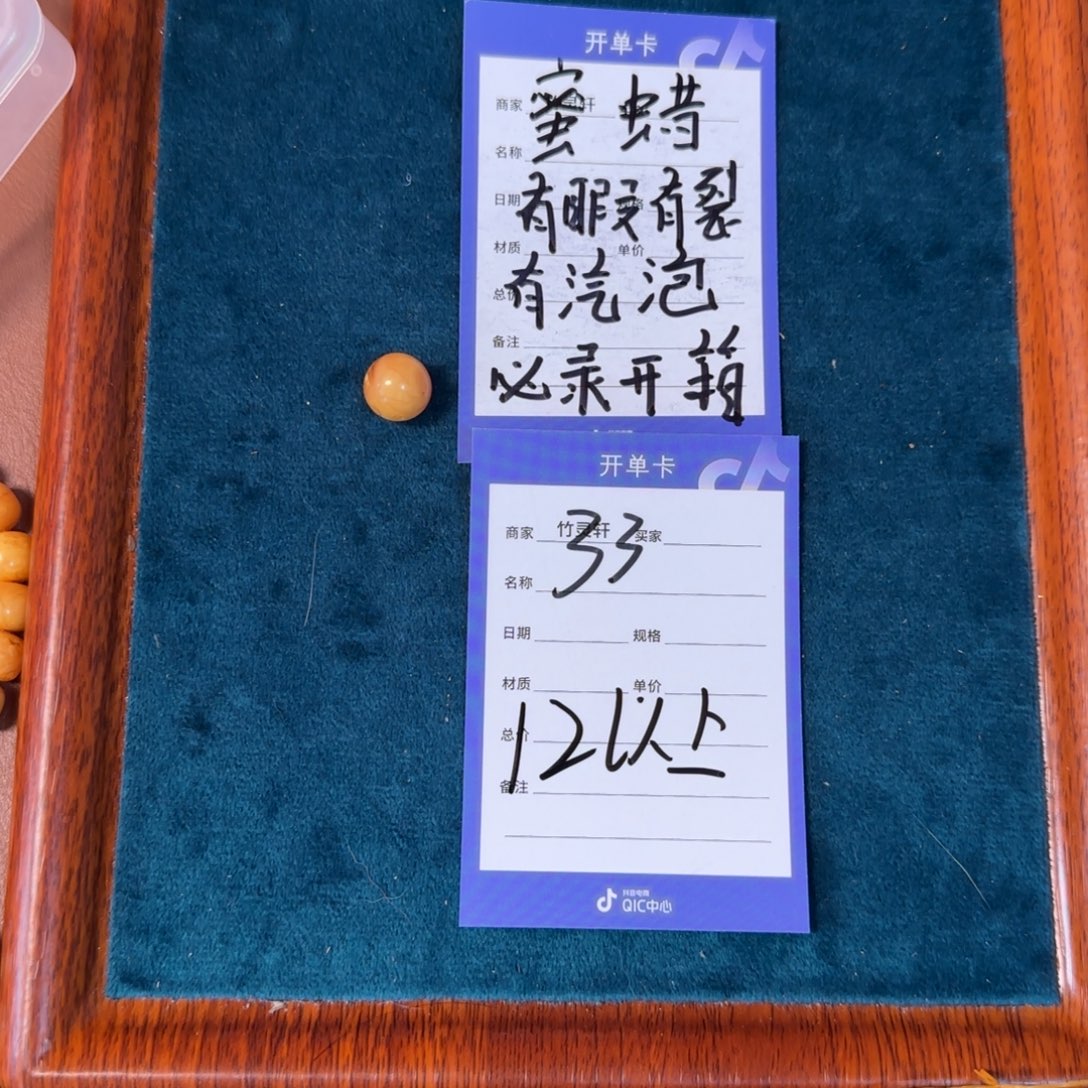 开单卡
商家 竹灵轩
蜜蜡
名称
日期
有暇有裂
材质 单价
有汽泡
总价
备注
必录开箱
开单卡
商家 竹灵轩 买家
33
名称
日期 规格
材质 单价
12以上
总价
备注
抖音电商
QIC中心